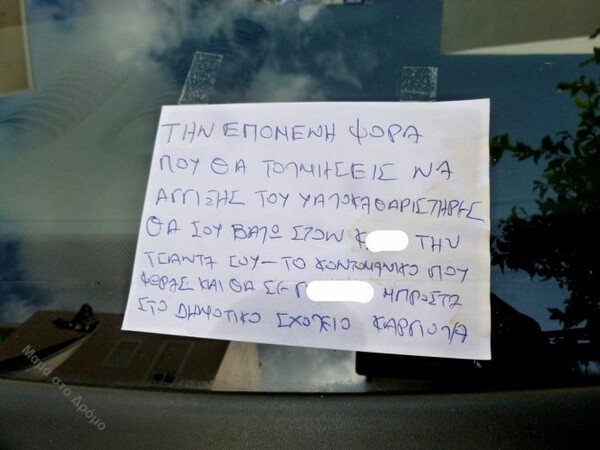 ΤΗΝ ΕΠΟΜΕΝΗ ΦΟΡΑ
ΠΟΥ ΘΑ ΤΟΛΜΗΣΕΙΣ ΝΑ
ΑΓΓΙΞΗΣ ΤΟΥ ΥΑΛΟΚΑΘΑΡΙΣΤΗΡΕΣ
ΘΑ ΣΟΥ ΒΑΛΩ ΣΤΟΝ Κ ΤΗΝ
ΤΣΑΝΤΑ ΣΟΥ - ΤΟ ΚΟΝΤΟΜΑΝΙΚΟ ΠΟΥ
ΦΟΡΑΣ ΚΑΙ ΘΑ ΣΕ Γ ΜΠΡΟΣΤΑ
ΣΤΟ ΔΗΜΟΤΙΚΟ ΣΧΟΛΕΙΟ
Μαμά στο Δρόμο